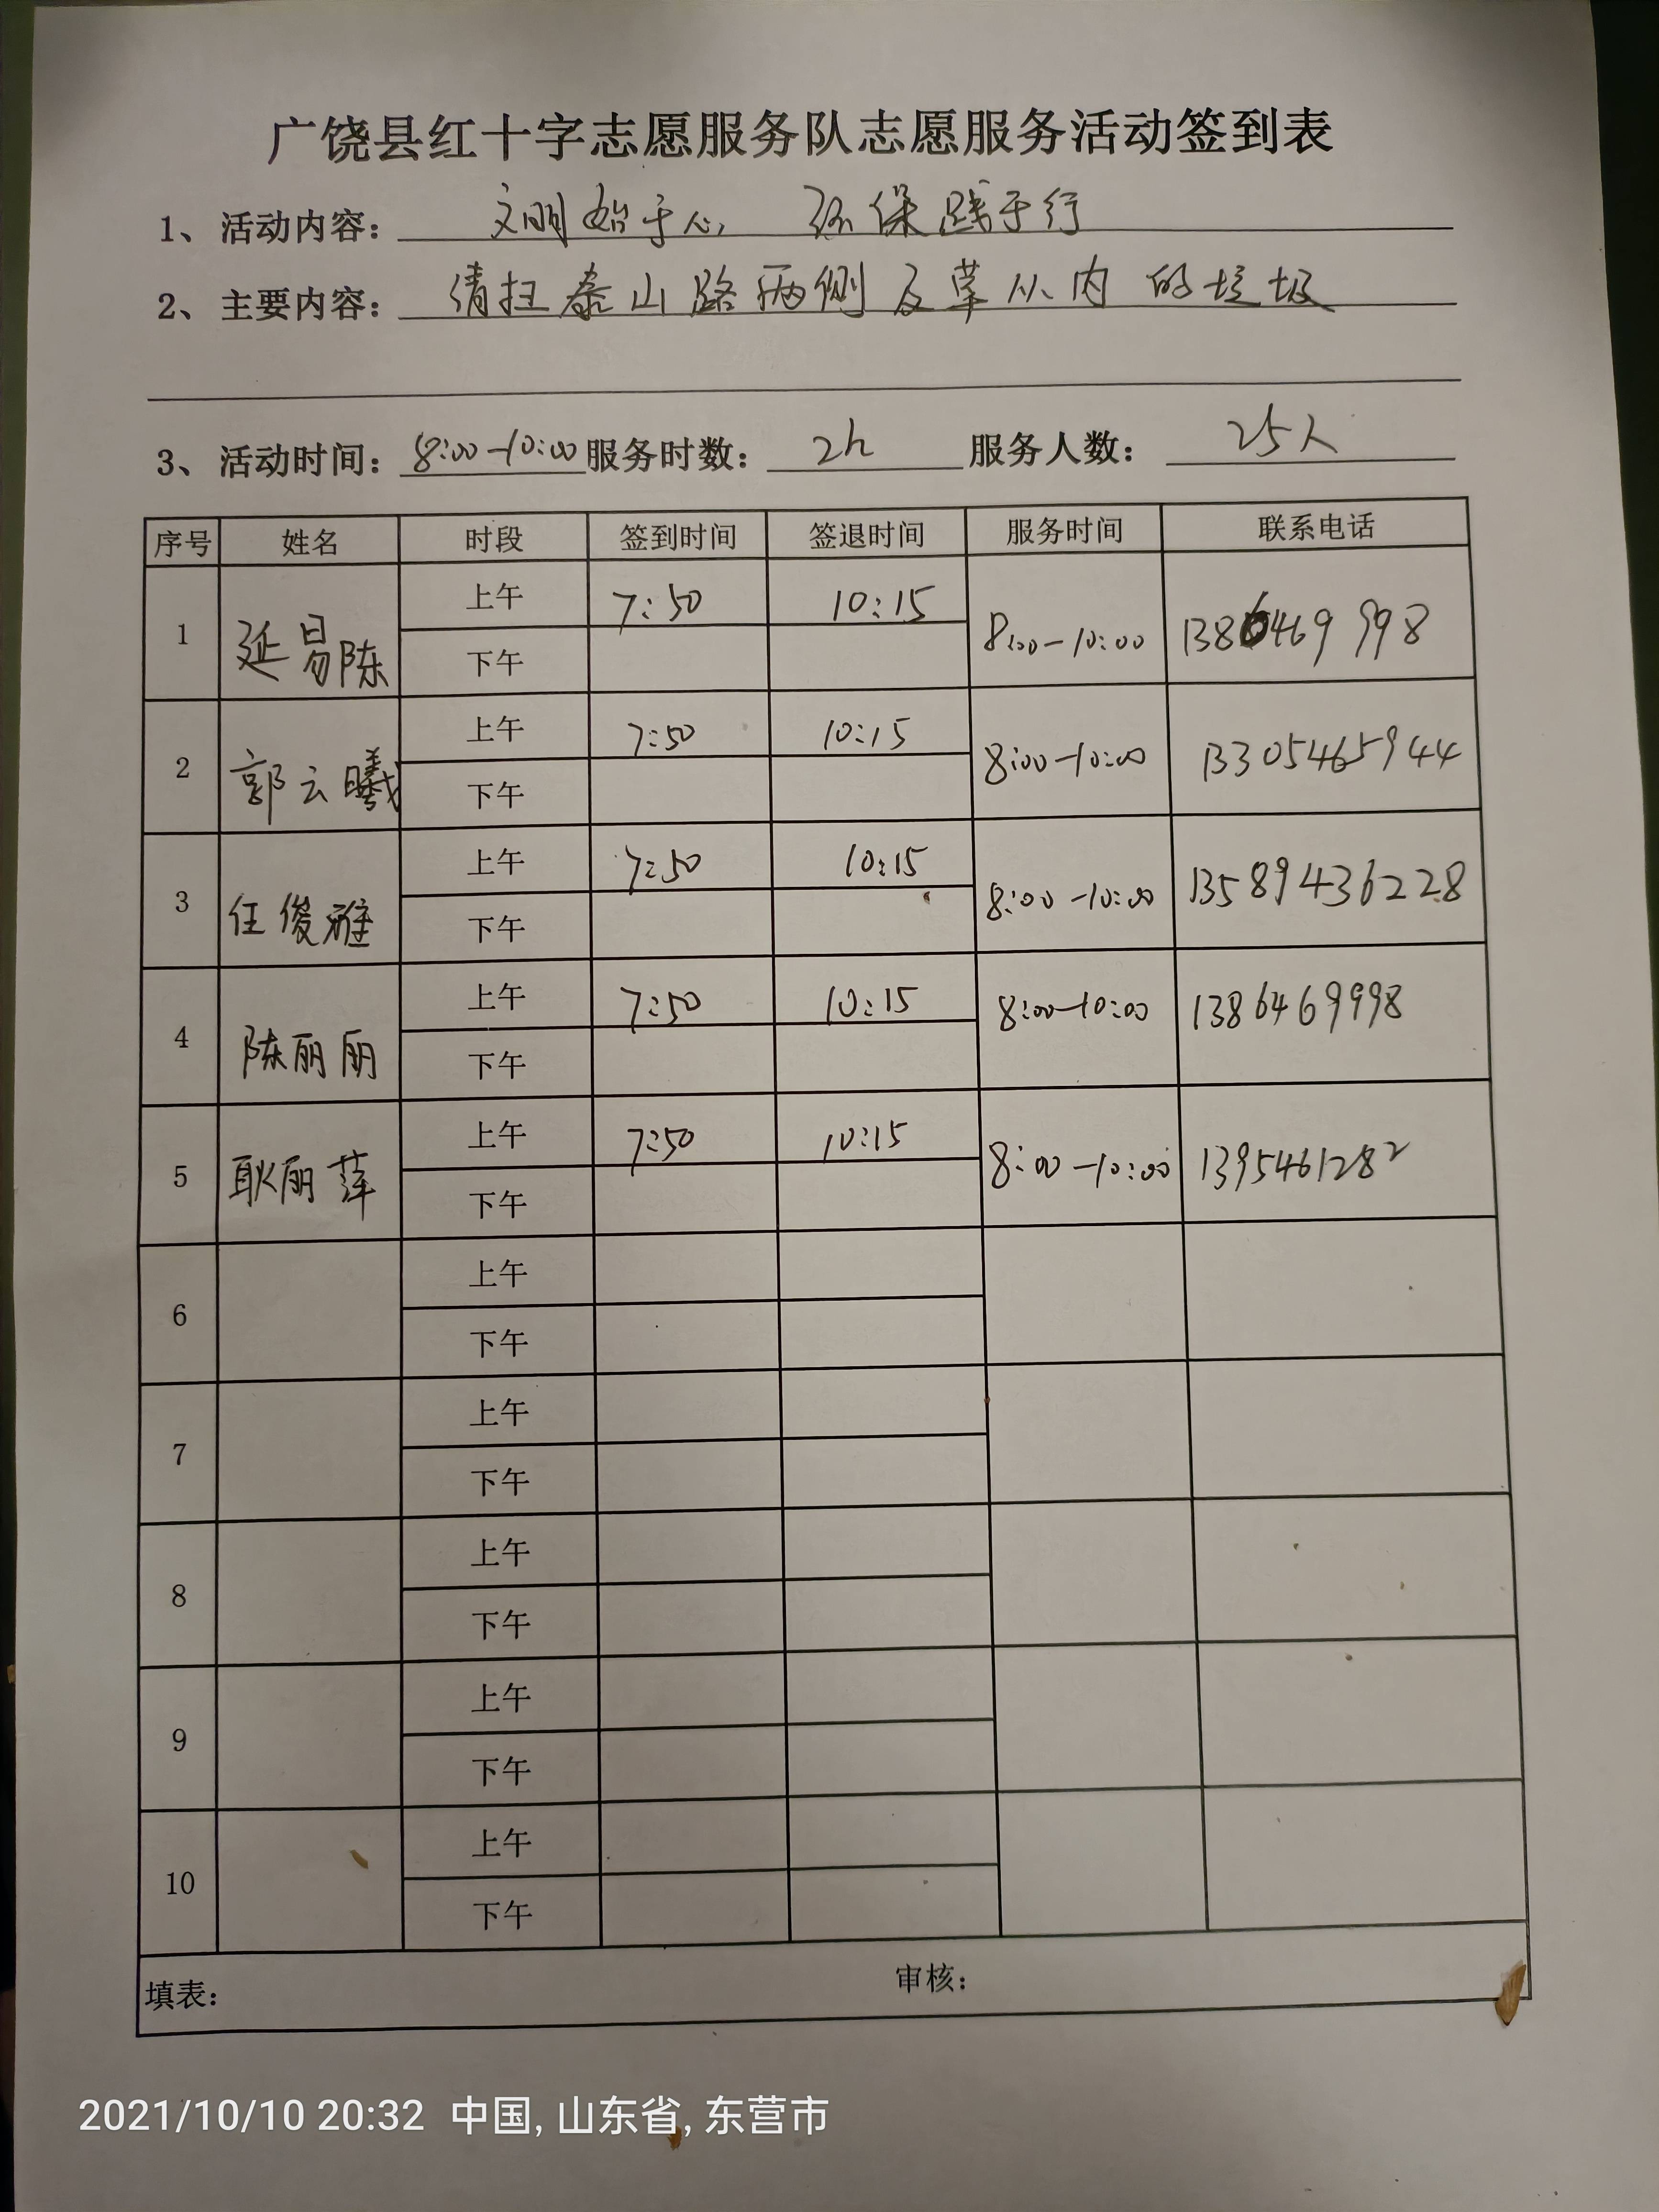 广饶县红十字志愿服务队志愿服务活动签到表
1、活动内容： 文明始于心， 环保践于行
2、主要内容： 清扫泰山路两侧及草从内的垃圾
3、活动时间：8:00-10:00 服务时数：2h 服务人数：25人
序号 姓名 时段 签到时间 签退时间 服务时间 联系电话
1 延易陈 上午 7:50 10:15 8:00-10:00 1386469998
下午
2 郭云曦 上午 7:50 10:15 8:00-10:00 13305465944
下午
3 任俊雅 上午 7:50 10:15 8:00-10:00 13589436228
下午
4 陈丽丽 上午 7:50 10:15 8:00-10:00 1386469998
下午
5 耿丽萍 上午 7:50 10:15 8:00-10:00 1395461282
下午
6 上午
下午
7 上午
下午
8 上午
下午
9 上午
下午
10 上午
下午
填表： 审核：
2021/10/10 20:32 中国, 山东省, 东营市